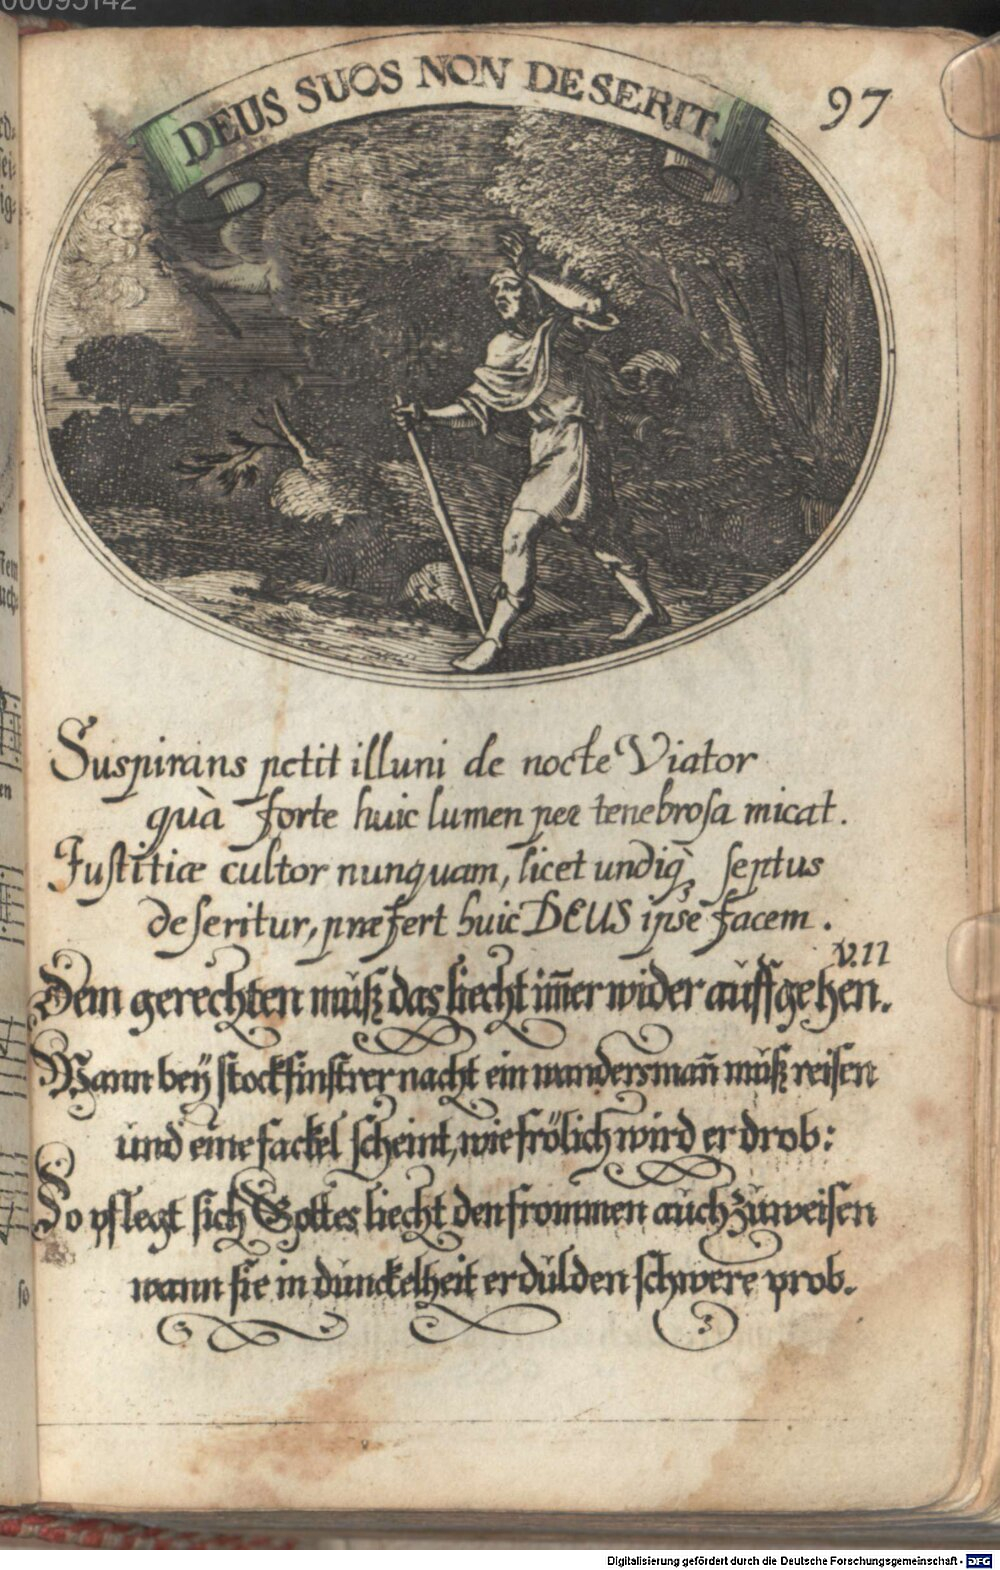 00095142
DEUS SUOS NON DESERIT.
97
Suspirans petit illuni de nocte Viator
quà forte huic lumen per tenebrosa micat.
Iustitiæ cultor nunquam, licet undiq́ꝫ septus
deseritur, præfert huic DEUS ipse facem.
V. 11
Dem gerechten mŭß das liecht im̄er wider aŭffgehen.
Wann beÿ stockfinstrer nacht ein wandersman̄ mŭß reisen
ŭnd eine fackel scheint, wie frölich wird er drob:
So pflegt sich Gottes liecht den frommen aŭch zŭweisen
wann sie in dŭnckelheit erdŭlden schwere prob.
Digitalisierung gefördert durch die Deutsche Forschungsgemeinschaft - DFG